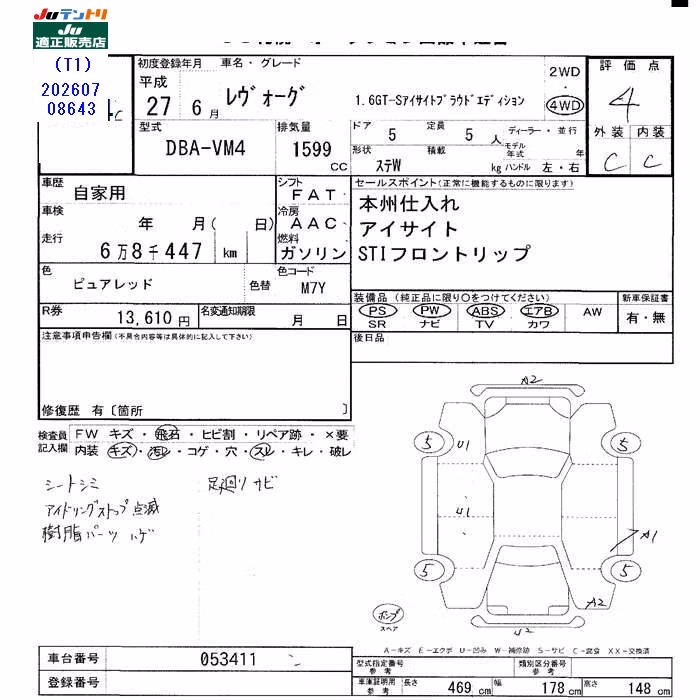 Juテントリ
Ju
適正販売店
(T1)
202607
08643
初度登録年月 車名・グレード
平成
27 6月 レヴォーグ 1.6GT-Sアイサイトプラウドエディション
2WD
・
4WD
評価点
4
外装 内装
C C
型式 排気量
DBA-VM4 1599 CC
ドア 5 定員 5 人 ディーラー・並行
形状 ステW 積載 kg モデル年式 年
ハンドル 左・右
車歴 自家用
シフト FAT
車検 年 月( 日)
冷房 AAC
走行 6万8千447 km
燃料 ガソリン
セールスポイント(正常に機能するものに限ります)
本州仕入れ
アイサイト
STIフロントリップ
色 ピュアレッド 色替
色コード M7Y
装備品(純正品に限り〇をつけてください) 新車保証書
PS・PW・ABS・エアB・AW 有・無
SR ナビ TV カワ
R券 13,610円 名変通知期限 月 日
注意事項申告欄(不具合内容等は具体的に記入して下さい)
後日品
修復歴 有〔箇所 〕
検査員記入欄 FW キズ・飛石・ヒビ割・リペア跡・×要
内装 キズ・汚レ・コゲ・穴・スレ・キレ・破レ
シートシミ 足廻りサビ
アイドリングストップ点滅
樹脂パーツハゲ
A2
5 U1 5
U1
A1
5 5
A2
U2
ポンプ
スペア
A-キズ E-エクボ U-凹み W-補修跡 S-サビ C-腐食 XX-交換済
車台番号 053411
登録番号
型式指定番号 参考 類別区分番号 参考
車庫証明用 参考 長さ 469 cm 幅 178 cm 高さ 148 cm